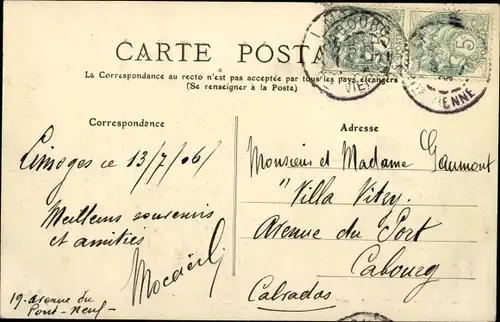 CARTE POSTA
La Correspondance au recto n'est pas acceptée par tous les pays étrangers
(Se renseigner à la Poste)
Correspondance
Limoges le 13/7/06
Meilleurs souvenirs
et amitiés
19 avenue du
Pont-Neuf
Adresse
Monsieur et Madame Gaumont
"Villa Vitry.
Avenue du Port
Cabourg
Calvados
5
VIENNE